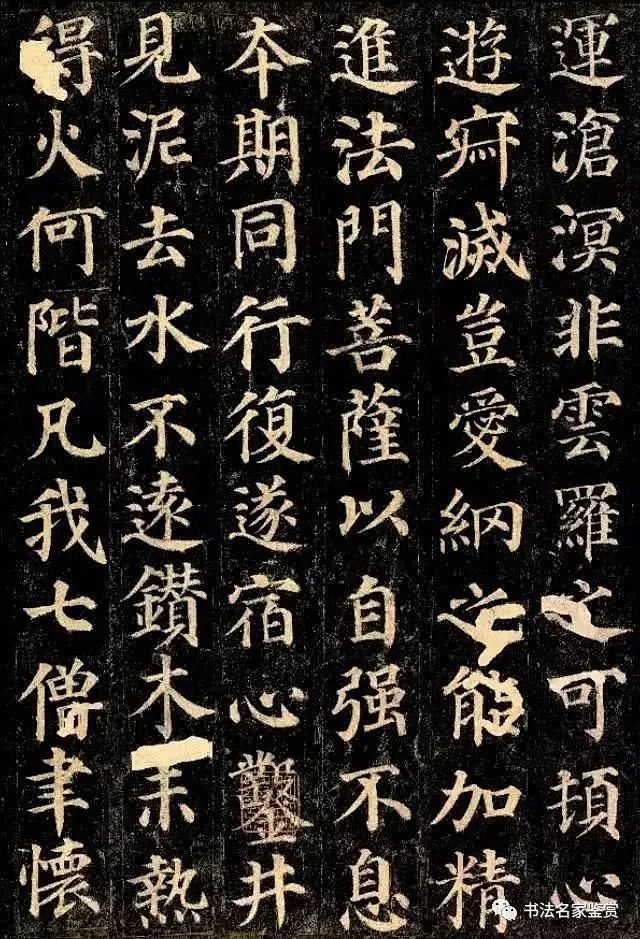 運滄溟非雲羅之可頓心
遊寂滅豈愛網之能加精
進法門菩薩以自强不息
本期同行復遂宿心鑿井
見泥去水不遠鑽木未熱
得火何階凡我七僧聿懷
书法名家鉴赏